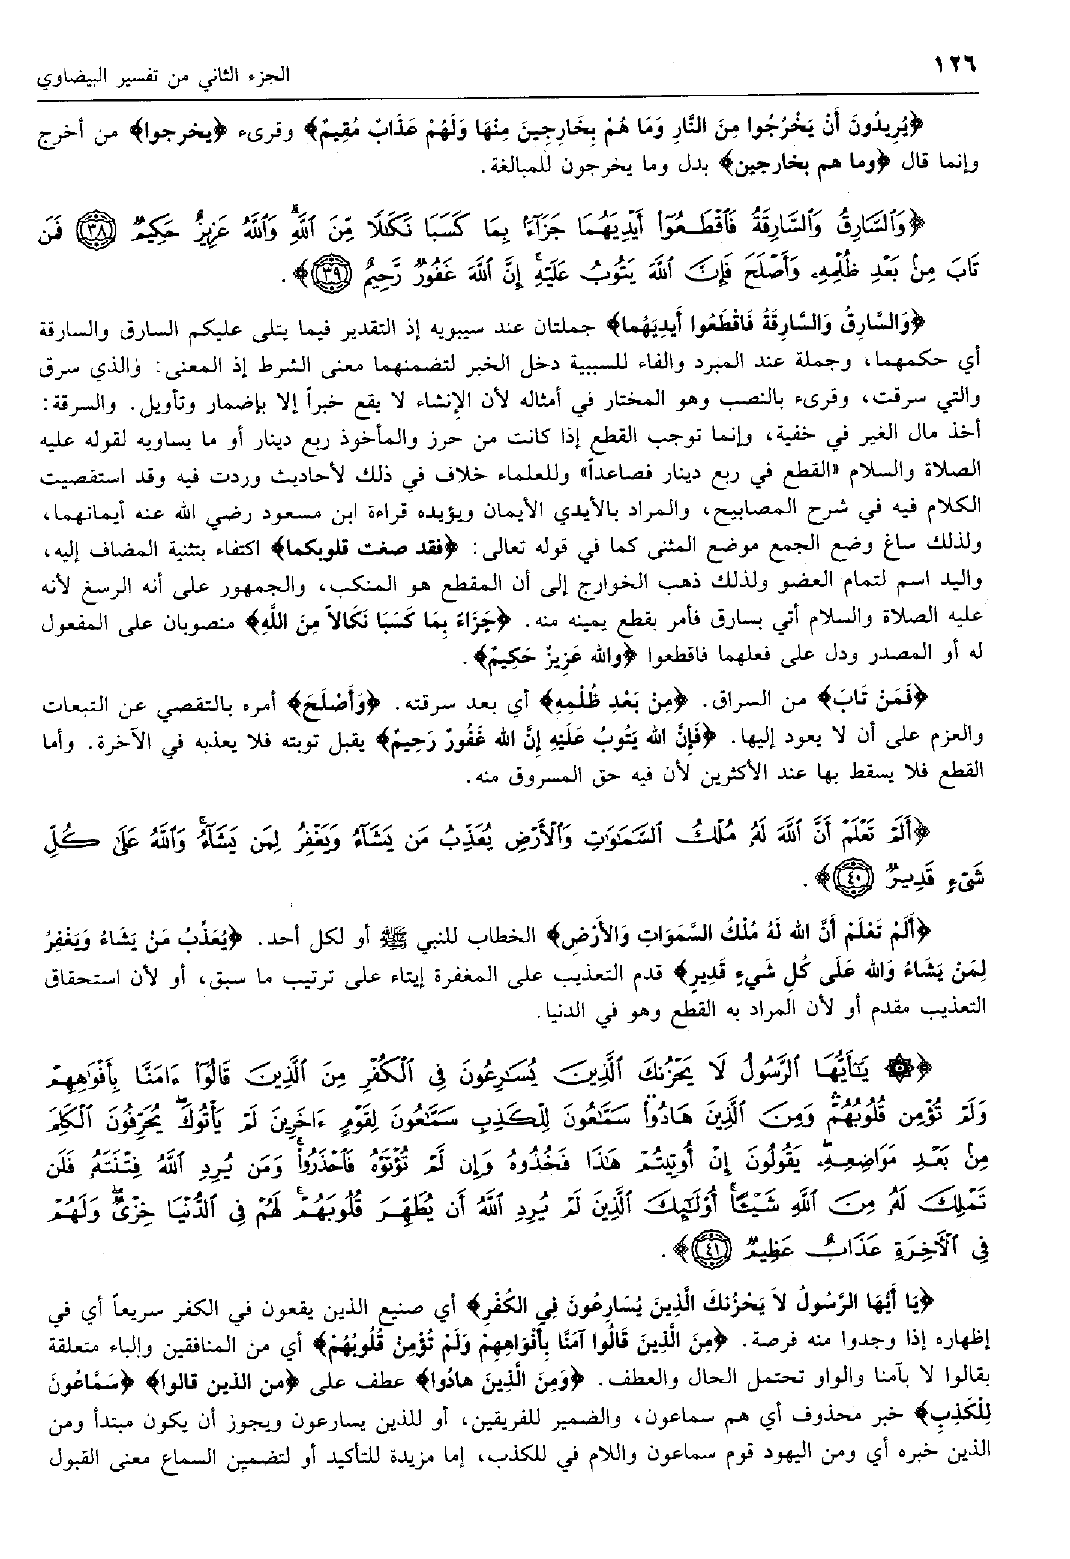 ١٢٦
الجزء الثاني من تفسير البيضاوي
﴿يُرِيدُونَ أَنْ يَخْرُجُوا مِنَ النَّارِ وَمَا هُمْ بِخَارِجِينَ مِنْهَا وَلَهُمْ عَذَابٌ مُقِيمٌ﴾ وقرىء ﴿يخرجوا﴾ من أخرج
وإنما قال ﴿وما هم بخارجين﴾ بدل وما يخرجون للمبالغة.
﴿وَٱلسَّارِقُ وَٱلسَّارِقَةُ فَٱقْطَعُوٓا۟ أَيْدِيَهُمَا جَزَآءًۢ بِمَا كَسَبَا نَكَٰلًا مِّنَ ٱللَّهِۗ وَٱللَّهُ عَزِيزٌ حَكِيمٌ ﴿٣٨﴾ فَمَن
تَابَ مِنۢ بَعْدِ ظُلْمِهِۦ وَأَصْلَحَ فَإِنَّ ٱللَّهَ يَتُوبُ عَلَيْهِۚ إِنَّ ٱللَّهَ غَفُورٌ رَّحِيمٌ ﴿٣٩﴾﴾.
﴿وَالسَّارِقُ وَالسَّارِقَةُ فَاقْطَعُوا أَيدِيَهُما﴾ جملتان عند سيبويه إذ التقدير فيما يتلى عليكم السارق والسارقة
أي حكمهما، وجملة عند المبرد والفاء للسببية دخل الخبر لتضمنهما معنى الشرط إذ المعنى: والذي سرق
والتي سرقت، وقرىء بالنصب وهو المختار في أمثاله لأن الإنشاء لا يقع خبراً إلا بإضمار وتأويل. والسرقة:
أخذ مال الغير في خفية، وإنما توجب القطع إذا كانت من حرز والمأخوذ ربع دينار أو ما يساويه لقوله عليه
الصلاة والسلام «القطع في ربع دينار فصاعداً» وللعلماء خلاف في ذلك لأحاديث وردت فيه وقد استقصيت
الكلام فيه في شرح المصابيح، والمراد بالأيدي الأيمان ويؤيده قراءة ابن مسعود رضي الله عنه أيمانهما،
ولذلك ساغ وضع الجمع موضع المثنى كما في قوله تعالى: ﴿فقد صغت قلوبكما﴾ اكتفاء بتثنية المضاف إليه،
واليد اسم لتمام العضو ولذلك ذهب الخوارج إلى أن المقطع هو المنكب، والجمهور على أنه الرسغ لأنه
عليه الصلاة والسلام أتي بسارق فأمر بقطع يمينه منه. ﴿جَزَاءً بِمَا كَسَبَا نَكَالاً مِنَ اللَّهِ﴾ منصوبان على المفعول
له أو المصدر ودل على فعلهما فاقطعوا ﴿والله عَزِيزٌ حَكِيمٌ﴾.
﴿فَمَنْ تَابَ﴾ من السراق. ﴿مِنْ بَعْدِ ظُلْمِهِ﴾ أي بعد سرقته. ﴿وَأَصْلَحَ﴾ أمره بالتقصي عن التبعات
والعزم على أن لا يعود إليها. ﴿فَإِنَّ الله يَتُوبُ عَلَيْهِ إِنَّ الله غَفُورٌ رَحِيمٌ﴾ يقبل توبته فلا يعذبه في الآخرة. وأما
القطع فلا يسقط بها عند الأكثرين لأن فيه حق المسروق منه.
﴿أَلَمْ تَعْلَمْ أَنَّ ٱللَّهَ لَهُۥ مُلْكُ ٱلسَّمَٰوَٰتِ وَٱلْأَرْضِ يُعَذِّبُ مَن يَشَآءُ وَيَغْفِرُ لِمَن يَشَآءُۗ وَٱللَّهُ عَلَىٰ كُلِّ
شَىْءٍ قَدِيرٌ ﴿٤٠﴾﴾.
﴿أَلَمْ تَعْلَمْ أَنَّ الله لَهُ مُلْكُ السَّمَوَاتِ وَالأَرْضِ﴾ الخطاب للنبي ﷺ أو لكل أحد. ﴿يُعَذِّبُ مَنْ يَشَاءُ وَيَغْفِرُ
لِمَنْ يَشَاءُ وَالله عَلَى كُلِ شَيءٍ قَدِيرٍ﴾ قدم التعذيب على المغفرة إيتاء على ترتيب ما سبق، أو لأن استحقاق
التعذيب مقدم أو لأن المراد به القطع وهو في الدنيا.
﴿۞ يَٰٓأَيُّهَا ٱلرَّسُولُ لَا يَحْزُنكَ ٱلَّذِينَ يُسَٰرِعُونَ فِى ٱلْكُفْرِ مِنَ ٱلَّذِينَ قَالُوٓا۟ ءَامَنَّا بِأَفْوَٰهِهِمْ
وَلَمْ تُؤْمِن قُلُوبُهُمْۛ وَمِنَ ٱلَّذِينَ هَادُوا۟ۛ سَمَّٰعُونَ لِلْكَذِبِ سَمَّٰعُونَ لِقَوْمٍ ءَاخَرِينَ لَمْ يَأْتُوكَۖ يُحَرِّفُونَ ٱلْكَلِمَ
مِنۢ بَعْدِ مَوَاضِعِهِۦۖ يَقُولُونَ إِنْ أُوتِيتُمْ هَٰذَا فَخُذُوهُ وَإِن لَّمْ تُؤْتَوْهُ فَٱحْذَرُوا۟ۚ وَمَن يُرِدِ ٱللَّهُ فِتْنَتَهُۥ فَلَن
تَمْلِكَ لَهُۥ مِنَ ٱللَّهِ شَيْـًٔاۚ أُو۟لَٰٓئِكَ ٱلَّذِينَ لَمْ يُرِدِ ٱللَّهُ أَن يُطَهِّرَ قُلُوبَهُمْۚ لَهُمْ فِى ٱلدُّنْيَا خِزْىٌۖ وَلَهُمْ
فِى ٱلْـَٔاخِرَةِ عَذَابٌ عَظِيمٌ ﴿٤١﴾﴾.
﴿يَا أَيُّهَا الرَّسُولُ لاَ يَحْزُنكَ الَّذِينَ يُسَارِعُونَ فِي الكُفْرِ﴾ أي صنيع الذين يقعون في الكفر سريعاً أي في
إظهاره إذا وجدوا منه فرصة. ﴿مِنَ الَّذِينَ قَالُوا آمَنَّا بِأَفْوَاهِهِمْ وَلَمْ تُؤْمِنْ قُلُوبُهُمْ﴾ أي من المنافقين والباء متعلقة
بقالوا لا بآمنا والواو تحتمل الحال والعطف. ﴿وَمِنَ الَّذِينَ هادُوا﴾ عطف على ﴿من الذين قالوا﴾ ﴿سَمَّاعُونَ
لِلْكَذِبِ﴾ خبر محذوف أي هم سماعون، والضمير للفريقين، أو للذين يسارعون ويجوز أن يكون مبتدأ ومن
الذين خبره أي ومن اليهود قوم سماعون واللام في للكذب، إما مزيدة للتأكيد أو لتضمين السماع معنى القبول